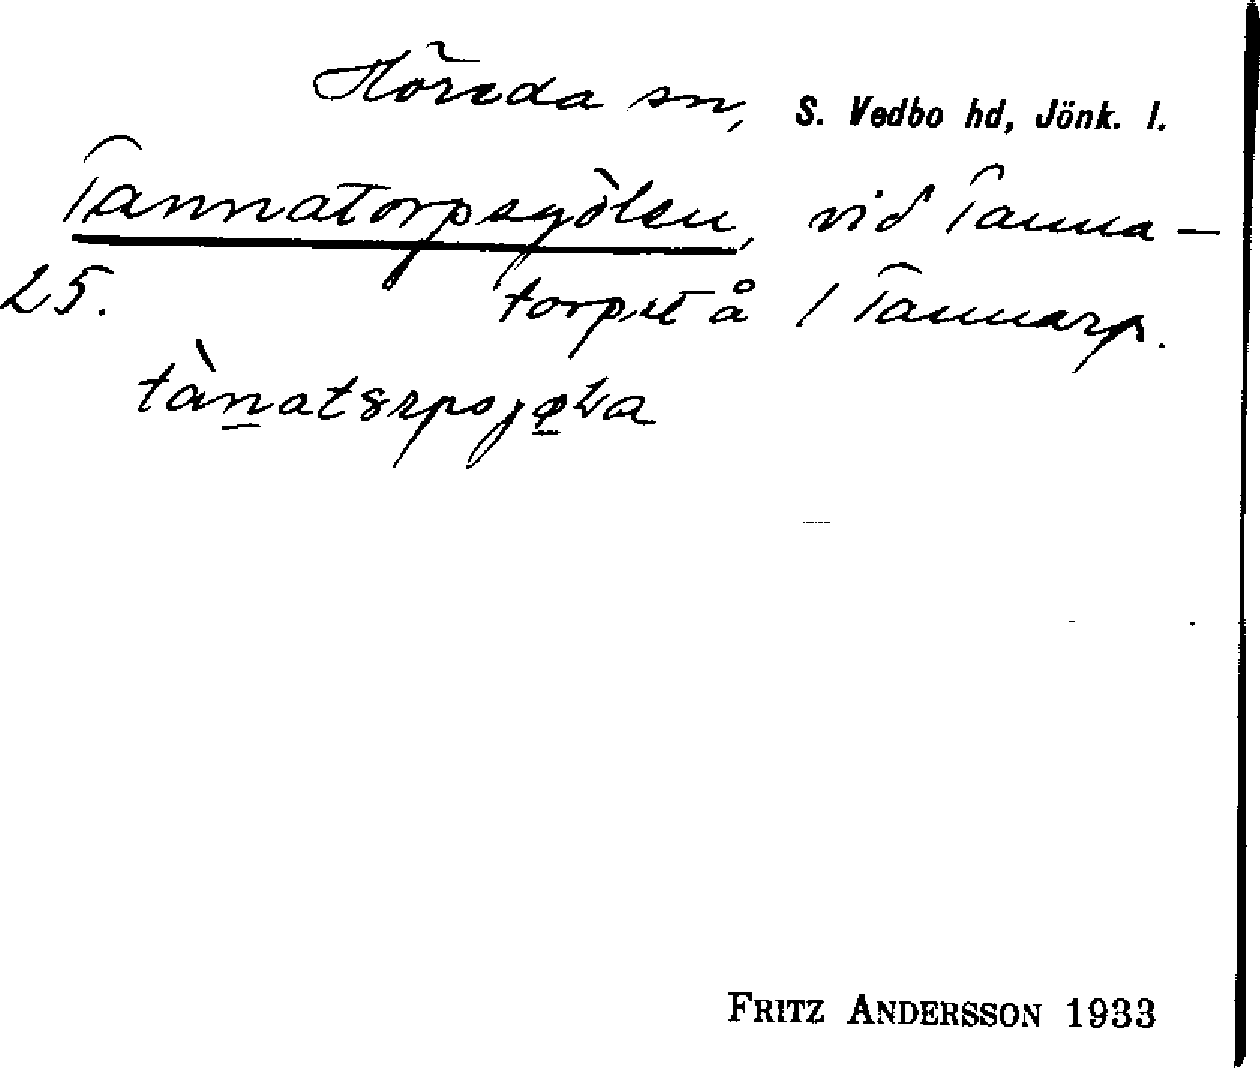 Höreda sn, S. Vedbo hd, Jönk. l.
Tannatorpsgölen, vid Tanna-
25. torpet å / Tannarp.
tànatɞrpsjøLa
FRITZ ANDERSSON 1933